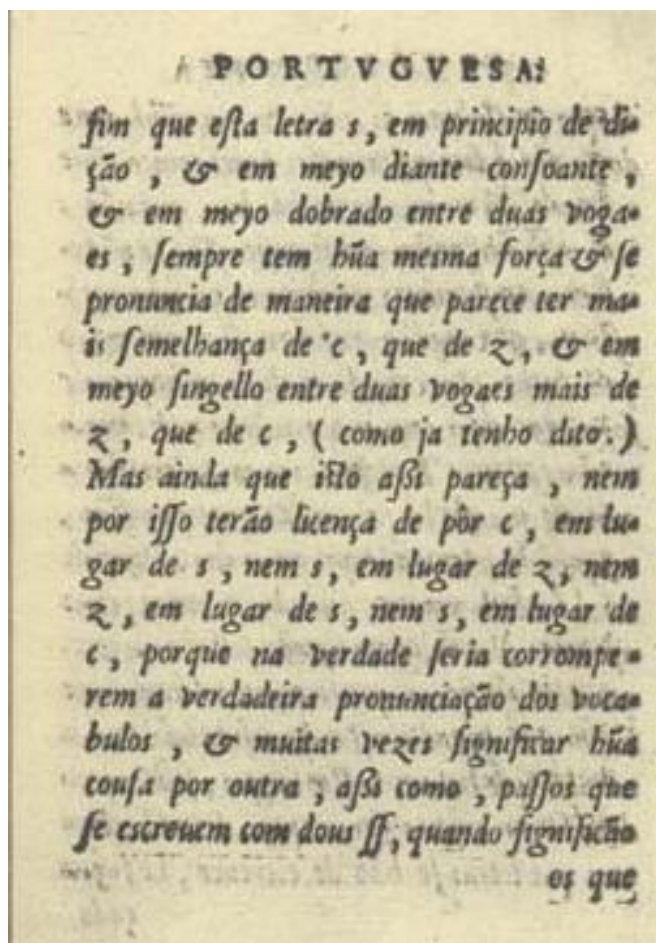 PORTVGVESA:
fim que eſta letra s, em principio de di-
ção, & em meyo diante conſoante,
& em meyo dobrado entre duas voga-
es, ſempre tem hũa meſma força & ſe
pronuncia de maneira que parece ter ma-
is ſemelhança de c, que de z, & em
meyo ſingello entre duas vogaes mais de
z, que de c, ( como ja tenho dito.)
Mas ainda que iſto aßi pareça, nem
por iſſo terão licença de pôr c, em lu-
gar de s, nem s, em lugar de z, nem
z, em lugar de s, nem s, em lugar de
c, porque na verdade ſeria corrompe-
rem a verdadeira pronunciação dos voca-
bulos, & muitas vezes ſignificar hũa
couſa por outra, aßi como, paſſos que
ſe eſcreuem com dous ſſ, quando ſignificão
os que